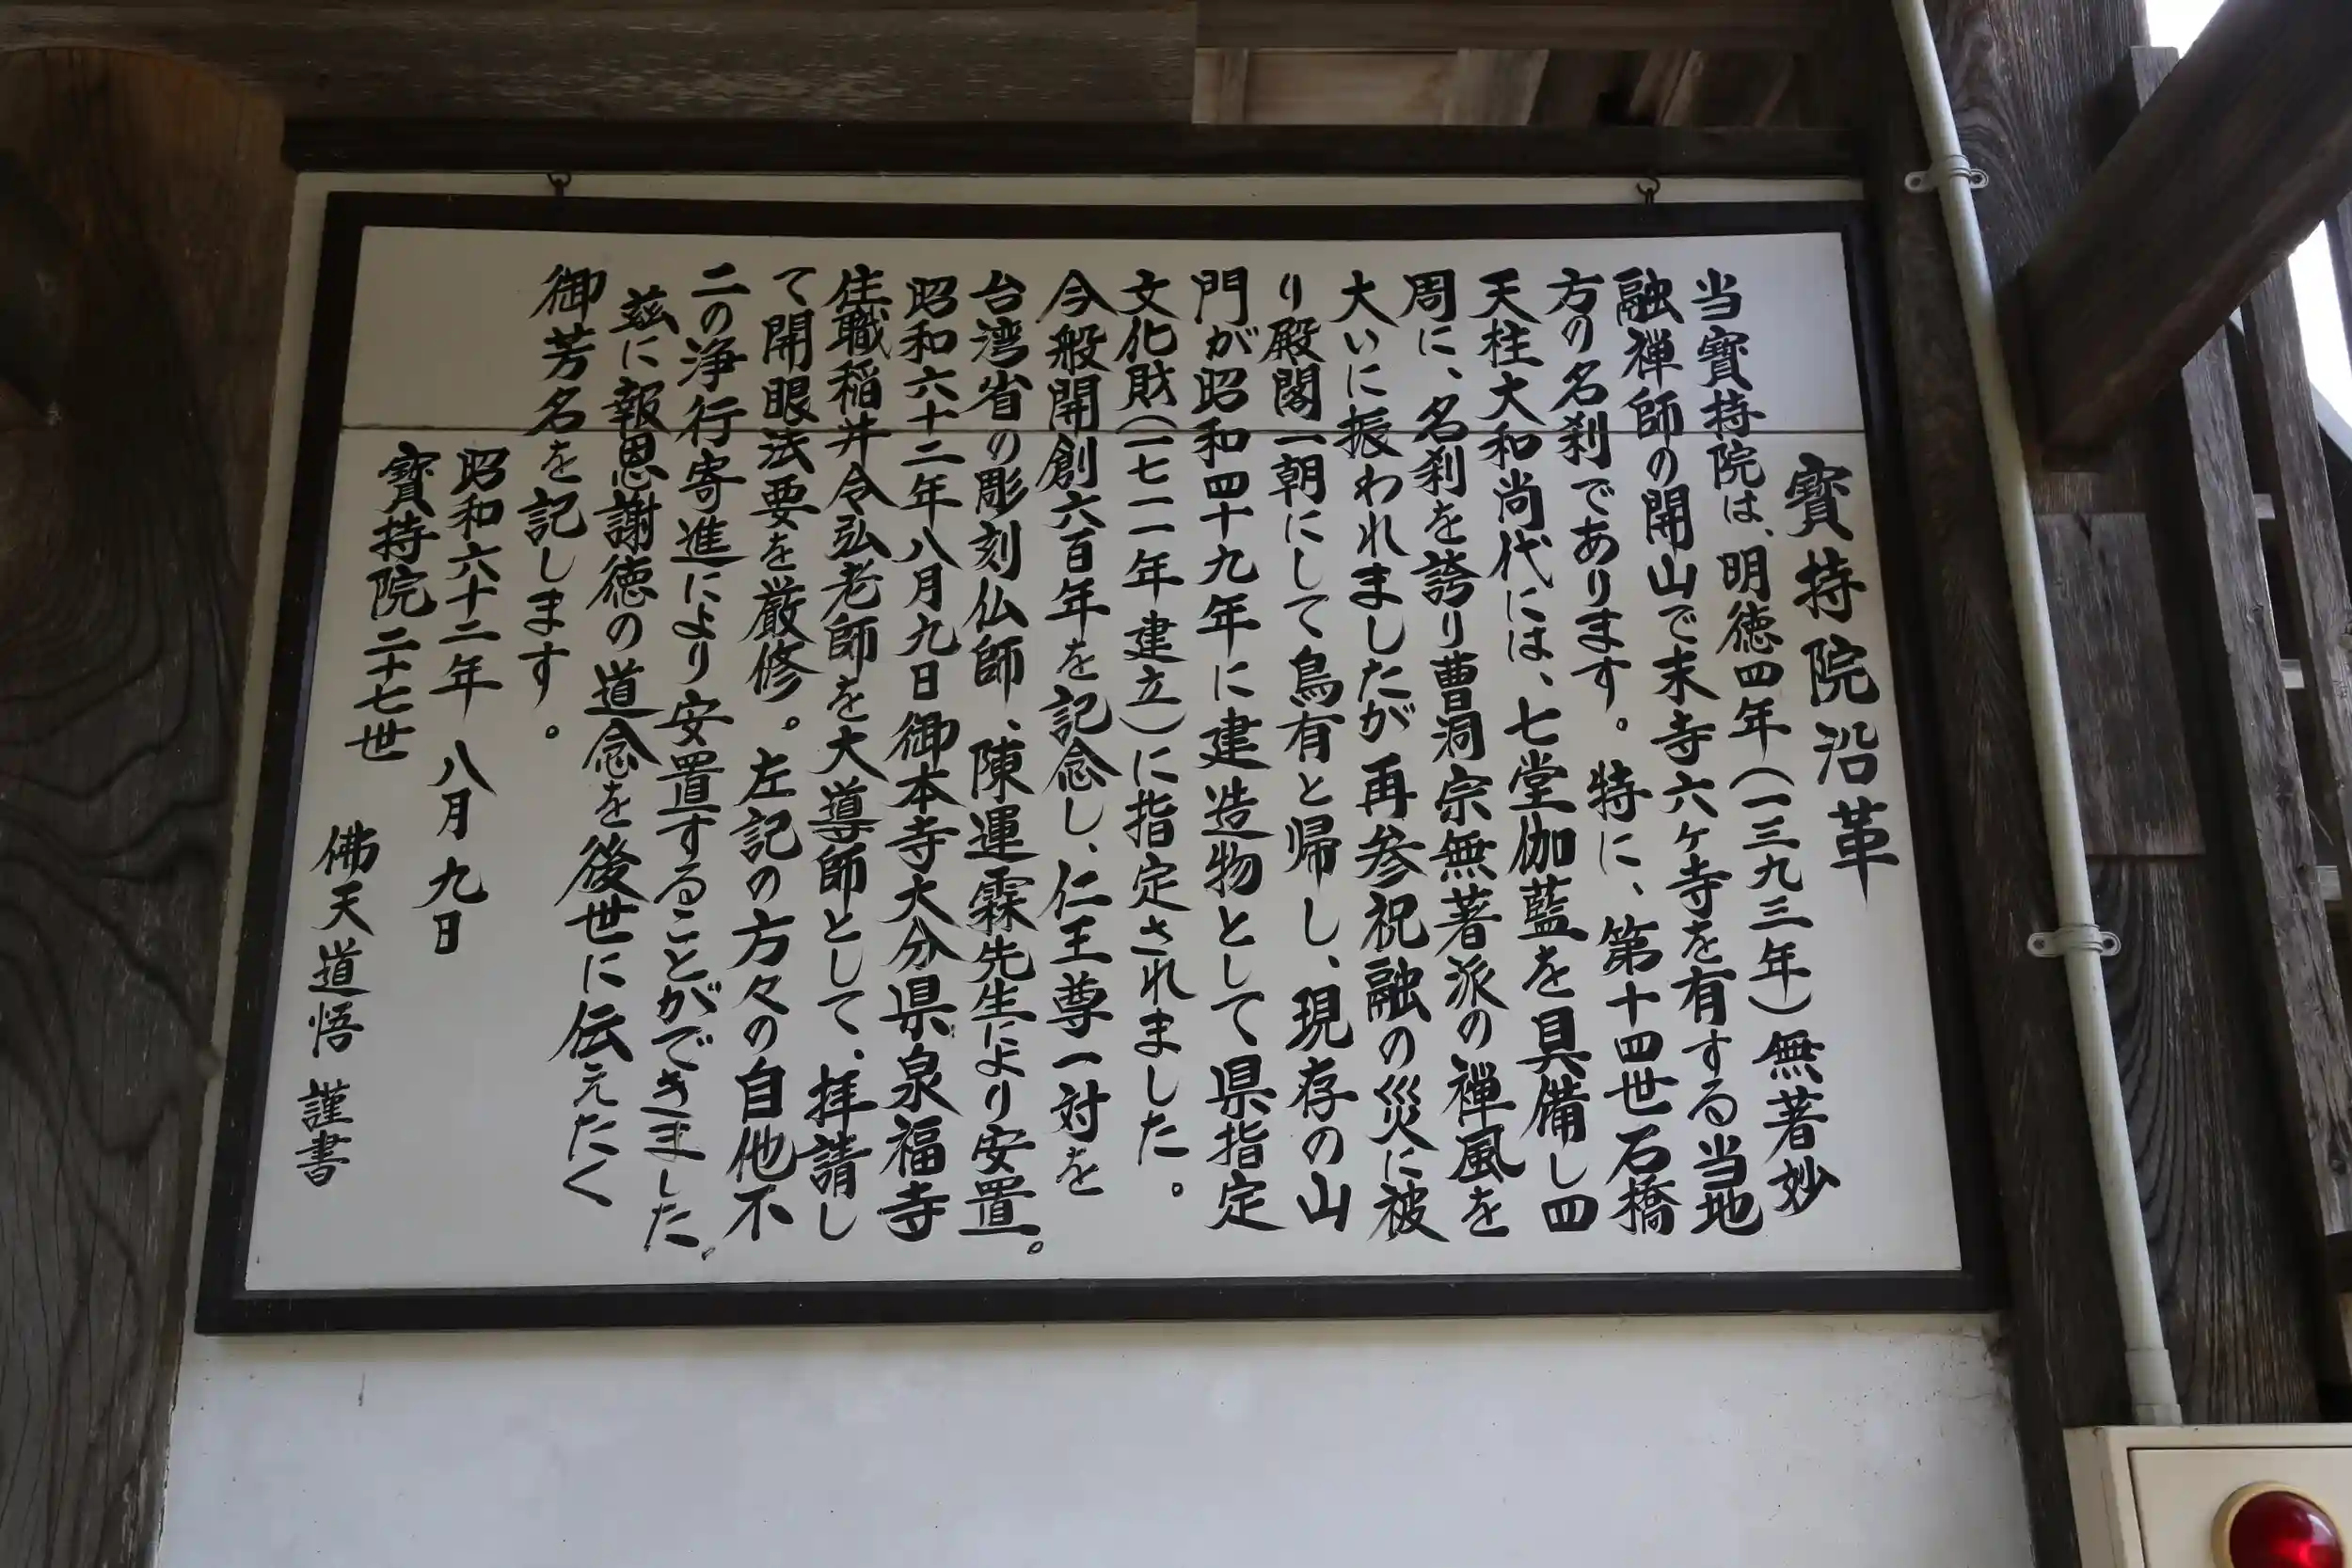 寳持院沿革
当寳持院は、明徳四年(一三九三年)無著妙
融禅師の開山で末寺六ヶ寺を有する当地
方の名刹であります。特に、第十四世石橋
天柱大和尚代には、七堂伽藍を具備し四
周に、名刹を誇り曹洞宗無著派の禅風を
大いに振われましたが再参祝融の災に被
り殿閣一朝にして鳥有と帰し、現存の山
門が昭和四十九年に建造物として県指定
文化財(一七一一年建立)に指定されました。
今般開創六百年を記念し、仁王尊一対を
台湾省の彫刻仏師、陳運霖先生により安置。
昭和六十二年八月九日御本寺大分県泉福寺
住職稲井令弘老師を大導師として、拝請し
て開眼法要を厳修。左記の方々の自他不
二の浄行寄進により安置することができました。
茲に報恩謝徳の道念を後世に伝えたく
御芳名を記します。
昭和六十二年 八月九日
寳持院二十七世 佛天道悟 謹書